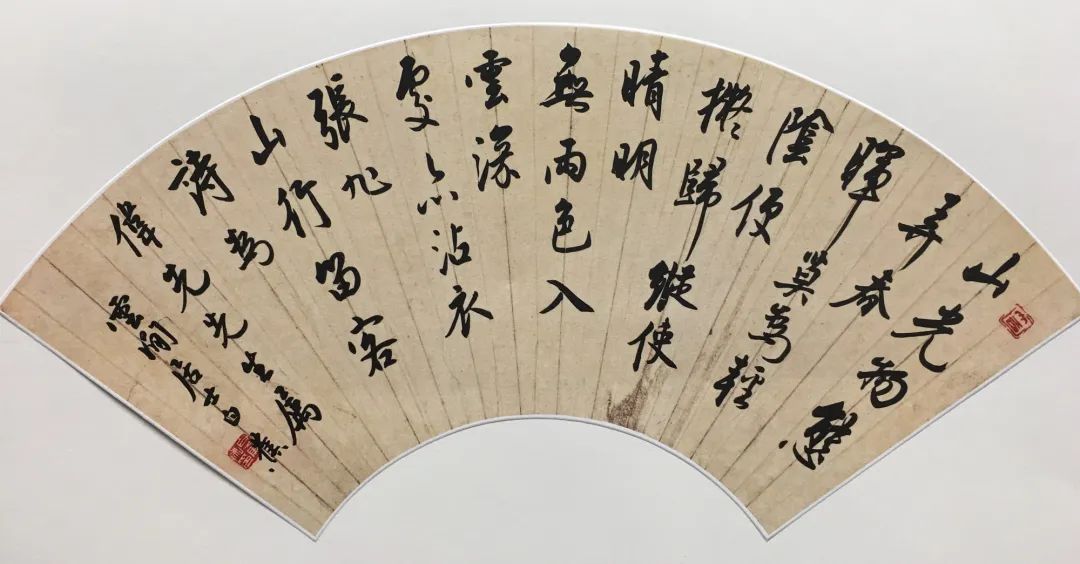 山光物態
弄春
暉莫為輕
陰便
擬歸縱使
晴明
無雨色入
雲深
處亦沾衣
張旭
山行留客
詩為
偉先先生屬
雲間居士白蕉